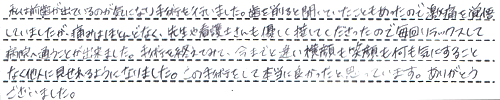 私は前歯が出ているのが気になり手術を行いました。歯を削ると聞いていたこともあったので激痛を覚悟
していましたが、痛みはほとんどなく、先生や看護さんも優しく接してくださったので毎回リラックスして
病院へ通うことが出来ました。手術を終えてみて、今までと違い横顔も笑顔も何も気にすること
なく他人に見せれるようになりました。この手術をして本当に良かったと思っています。ありがとう
ございました。